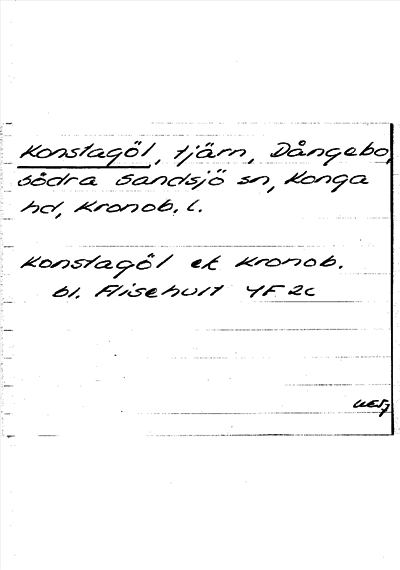 Konstagöl, tjärn, Dångebo,
Södra Sandsjö sn, Konga
hd, Kronob. l.
Konstagöl ek Kronob.
bl. Flisehult 4F 2c